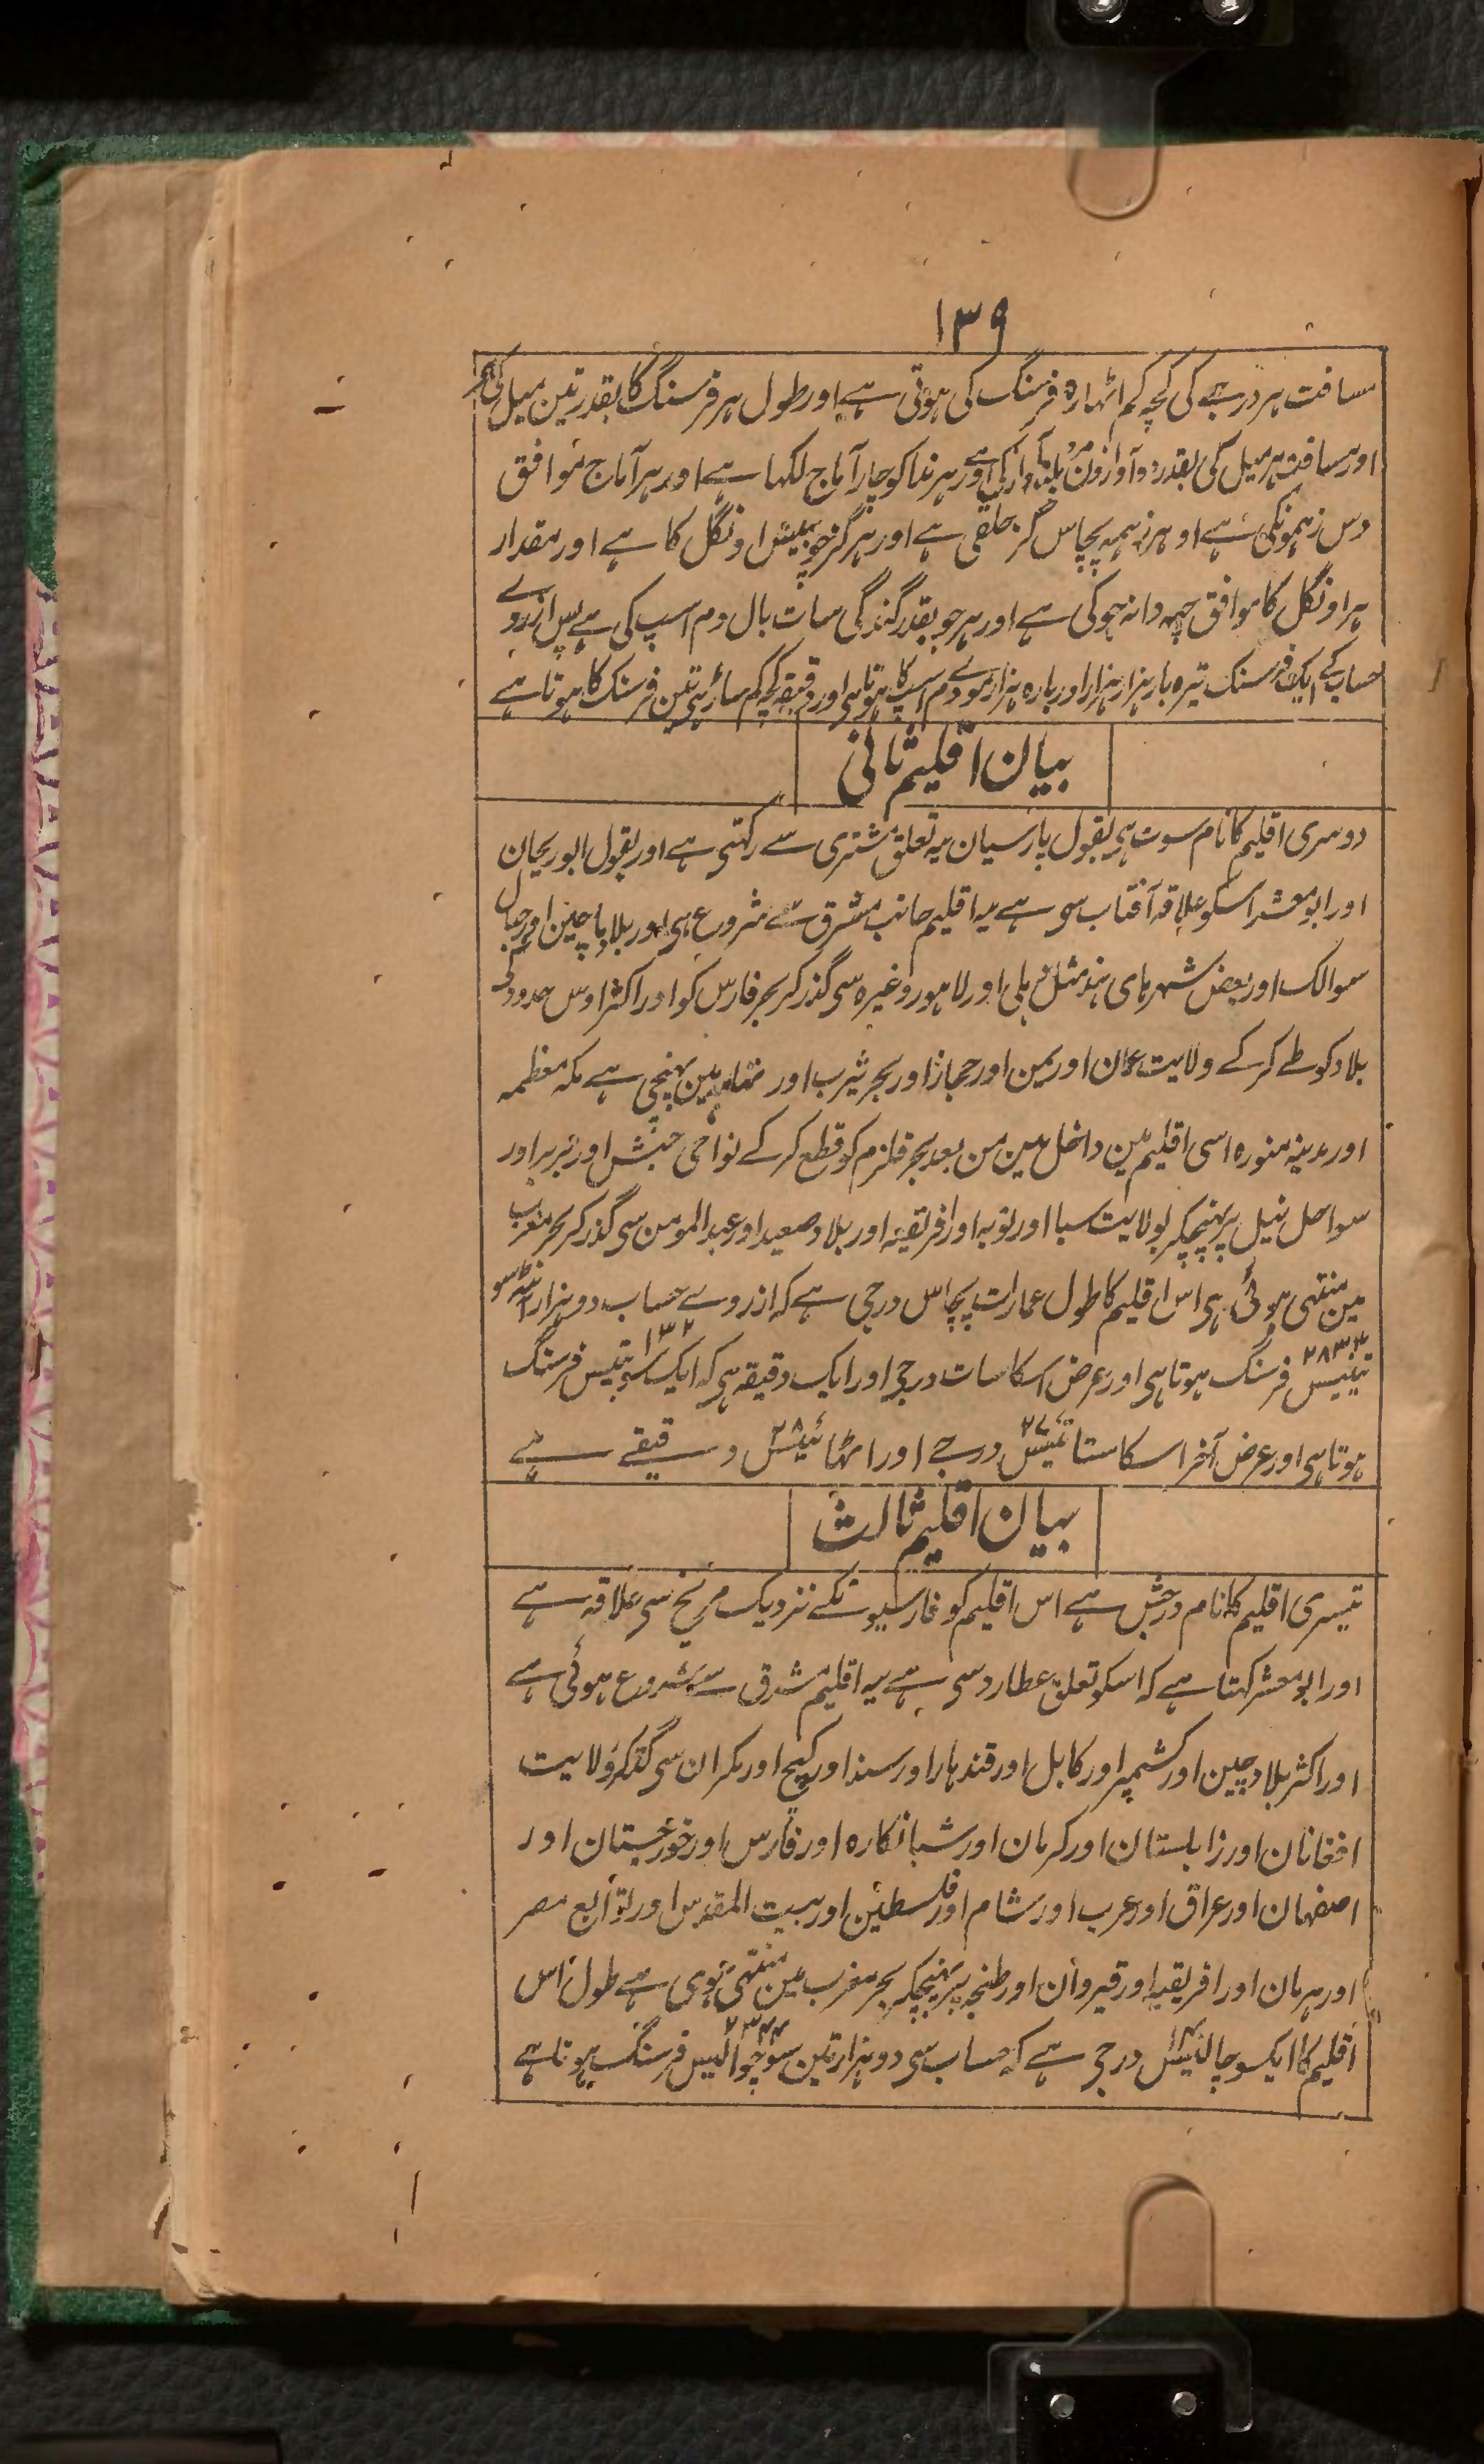 ١٣٩
مسافت ہر درجے کی کچہ کم اٹہارہ فرسنگ کی ہوتی ہے اور طول ہر فرسنگ کا بقدر تین میل کی
اور مسافت ہر میل کی بقدر دو آوازون مرد بلند آواز کی ہے اور ہر ندا کو چار آماج لکہا ہے اور ہر آماج موافق
دس زہمونکی ہے او ہر زہمہ پچاس گز خلقی ہے اور ہر گز چوبیس اونگل کا ہے اور مقدار
ہر اونگل کا موافق چہہ دانہ جو کی ہے اور ہر جو بقدر گندگی سات بال دم اسپ کی ہے پس ازروے
حساب کے ایک فرسنگ تیرہ بار ہزار ہزار اور بارہ ہزار موے دم اسپ کا ہوتا ہی اور دقیقہ کچہ کم ساڑہی تین فرسنگ کا ہوتا ہے
بیان اقلیم ثانی
دوسری اقلیم کا نام سوت ہی بقول پارسیان یہ تعلق مشتری سے رکہتی ہے اور بقول ابوریحان
اور ابو معشر اسکو علاقہ آفتاب سی ہے یہ اقلیم جانب مشرق سے شروع ہی اور بلاد ماچین اور جبال
سوالک اور بعض شہرہای ہند مثل دہلی اور لاہور وغیرہ سی گذر کر بحر فارس کو اور اکثر اوس حدود کی
بلاد کو طے کر کے ولایت عمان اور یمن اور حجاز اور بحر یثرب اور تہامہ مین پہنچی ہے مکہ معظمہ
اور مدینہ منورہ اسی اقلیم مین داخل ہین من بعد بحر قلزم کو قطع کر کے نواحی حبش اور بربر اور
سواحل نیل پر پہنچکر بولایت سبا اور نوبہ اور افریقیہ اور بلاد صعید اور عبد المومن سی گذر کر بحر مغرب
مین منتہی ہوئی ہی اس اقلیم کا طول عمارات پچاس درجی ہے کہ ازروے حساب دو ہزار آٹہہ سو
تینتیس ٢٨٣٣ فرسنگ ہوتا ہی اور عرض اسکا سات درجی اور ایک دقیقہ ہی کہ ایک سو بتیس ١٣٢ فرسنگ
ہوتا ہی اور عرض آخر اسکا ستائیس ٢٧ درجے اور اٹہائیس ٢٨ دقیقے ہے
بیان اقلیم ثالث
تیسری اقلیم کا نام درخش ہے اس اقلیم کو فارسیونکے نزدیک مریخ سی علاقہ ہے
اور ابو معشر کہتا ہے کہ اسکو تعلق عطارد سی ہے یہ اقلیم مشرق سے شروع ہوئی ہے
اور اکثر بلاد چین اور کشمیر اور کابل اور قندہار اور سند اور کیچ اور مکران سی گذر کر ولایت
افغانان اور زابلستان اور کرمان اور شبانکارہ اور فارس اور خوزستان اور
اصفہان اور عراق اور عرب اور شام اور فلسطین اور بیت المقدس اور توابع مصر
اور ہرمان اور افریقیہ اور قیروان اور طنجہ پر پہنچکر بحر مغرب مین منتہی ہوی ہے طول اس
اقلیم کا ایکسو چالیس درجی ہے کہ حساب سی دو ہزار تین سو چوالیس ٢٣٤٤ فرسنگ ہوتا ہے